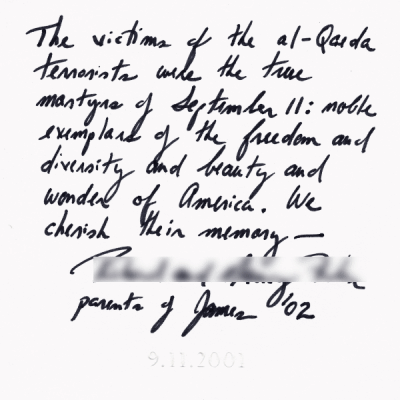 The victims of the al-Qaeda
terrorists were the true
martyrs of September 11: noble
exemplars of the freedom and
diversity and beauty and
wonder of America. We
cherish their memory—
parents of James '02
9.11.2001